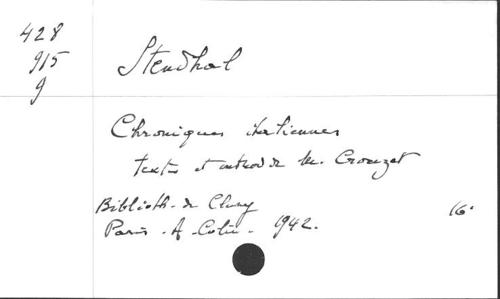 428
915
9
Stendhal
Chroniques italiennes
texte et introd. de M. Crouzet
Biblioth. de Cluny
Paris - A. Colin - 1942.
16°